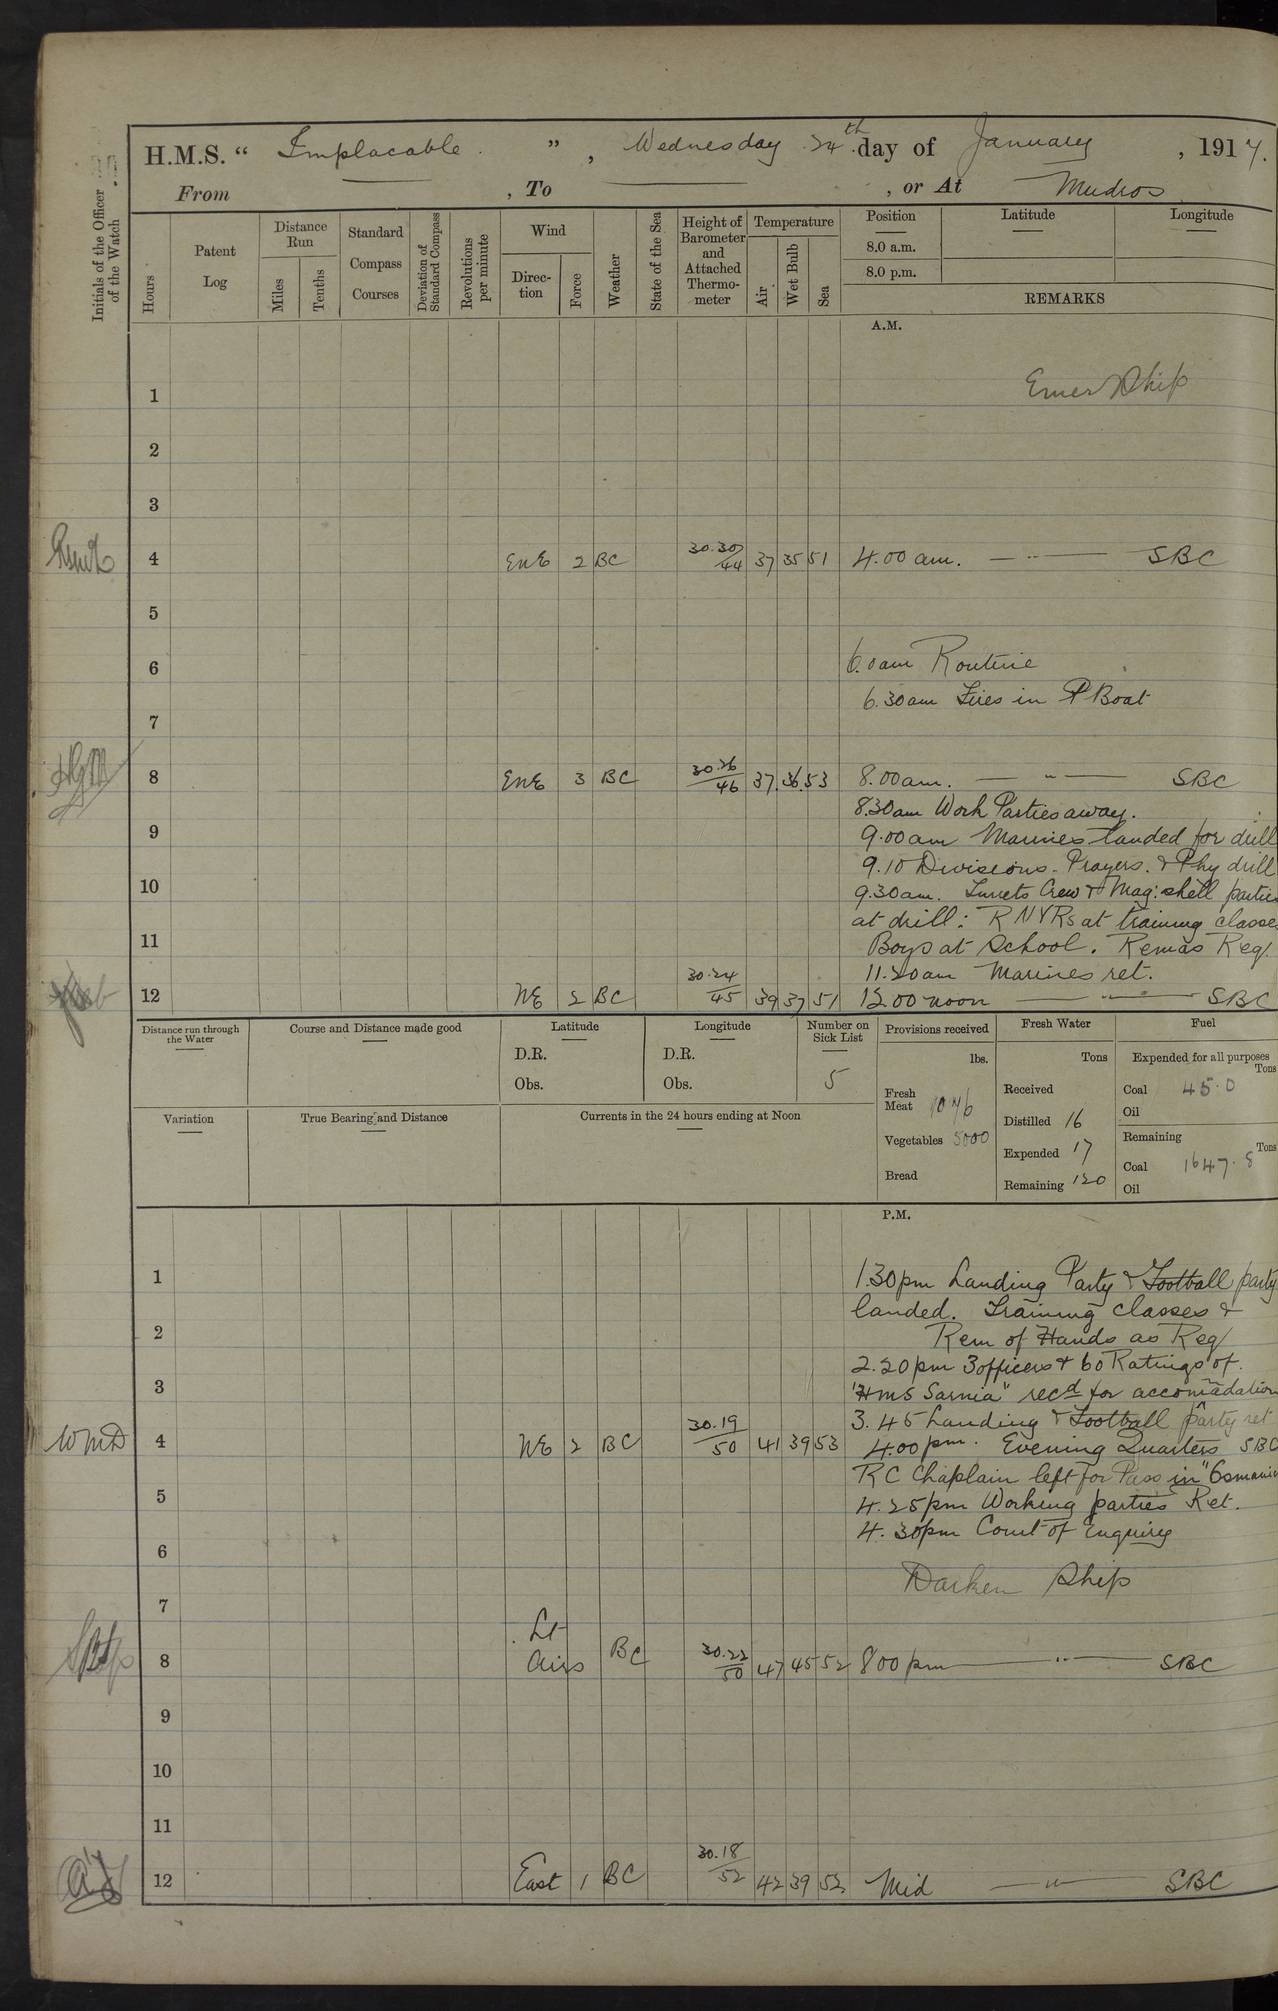 H.M.S. " Implacable ", Wednesday 24th day of January, 1917.
From — , To — , or At Mudros
Initials of the Officer of the Watch
Hours
Patent Log
Distance Run
Miles
Tenths
Standard Compass Courses
Deviation of Standard Compass
Revolutions per minute
Wind
Direc-tion
Force
Weather
State of the Sea
Height of Barometer and Attached Thermo-meter
Temperature
Air
Wet Bulb
Sea
Position
8.0 a.m.
8.0 p.m.
Latitude
Longitude
REMARKS
A.M.
1 Ship
2
3
4 EnE 2 BC 30.30/44 37 35 51 4.00 am. — " — SBC
5
6 6.0am Routine
6.30am Fires in P Boat
7
8 EnE 3 BC 30.26/46 37. 36. 53 8.00am. — " — SBC
8.30am Work Parties away.
9 9.00am Marines landed for drill
9.10 Divisions. Prayers. & Phy drill
10 9.30am. Turrets Crew & Mag: shell parties
at drill: RNVRs at training classes
11 Boys at School. Remas Req/.
11.20am Marines ret.
12 NE 2 BC 30.24/45 39 37 51 12.00 noon — " — SBC
Distance run through the Water
Course and Distance made good
Latitude
D.R.
Obs.
Longitude
D.R.
Obs.
Number on Sick List
5
Provisions received
lbs.
Fresh Meat
Vegetables 5000
Bread
Fresh Water
Tons
Received
Distilled 16
Expended 17
Remaining 120
Fuel
Expended for all purposes
Tons
Coal 45.0
Oil
Remaining
Tons
Coal 1647.8
Oil
Variation
True Bearing and Distance
Currents in the 24 hours ending at Noon
P.M.
1 1.30pm Landing Party & Football party
landed. Training classes &
2 Rem of Hands as Req/
2.20pm 3 officers & 60 Ratings of.
3 "HMS Sarnia" recd for accomadation
3.45 Landing & Football party ret
WMD 4 NE 2 BC 30.19/50 41 39 53 4.00pm. Evening Quarters SBC
RC Chaplain left for Pass in "Osmanieh
5 4.25pm Working parties Ret.
4.30pm Court of Enquiry
6
Darken Ship
7
8 Lt Airs BC 30.22/50 47 45 52 8 00 pm — " — SBC
9
10
11
12 East 1 BC 30.18/52 42 39 52 Mid — " — SBC